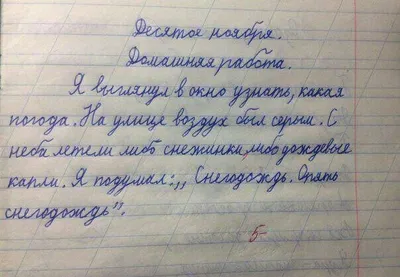 Десятое ноября.
Домашняя работа.
Я выглянул в окно узнать, какая
погода. На улице воздух был серым. С
неба летели либо снежинки, либо дождевые
капли. Я подумал: „ Снегодождь. Опять
снегодождь”.
5-